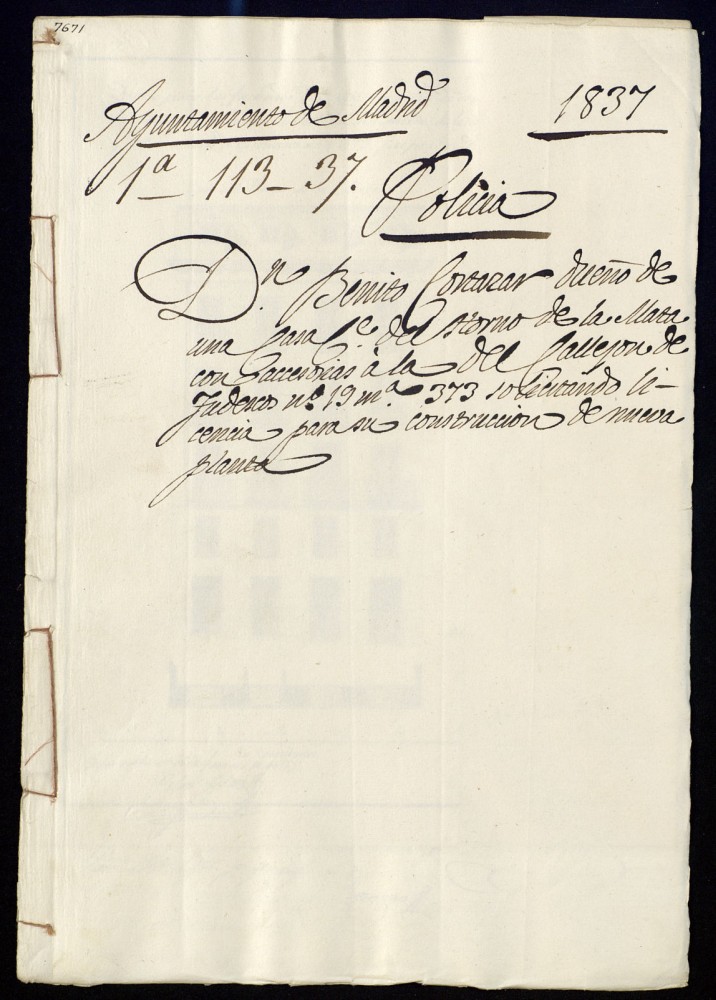 7671
Ayuntamiento de Madrid 1837
1ª 113-37.
Policia
D.n Benito Cortazar dueño de
una Casa C.e del Horno de la Mata
con accesorias á la del Callejon de
Tudescos n.º 19 m.ª 373 solicitando li-
cencia para su construccion de nueva
planta